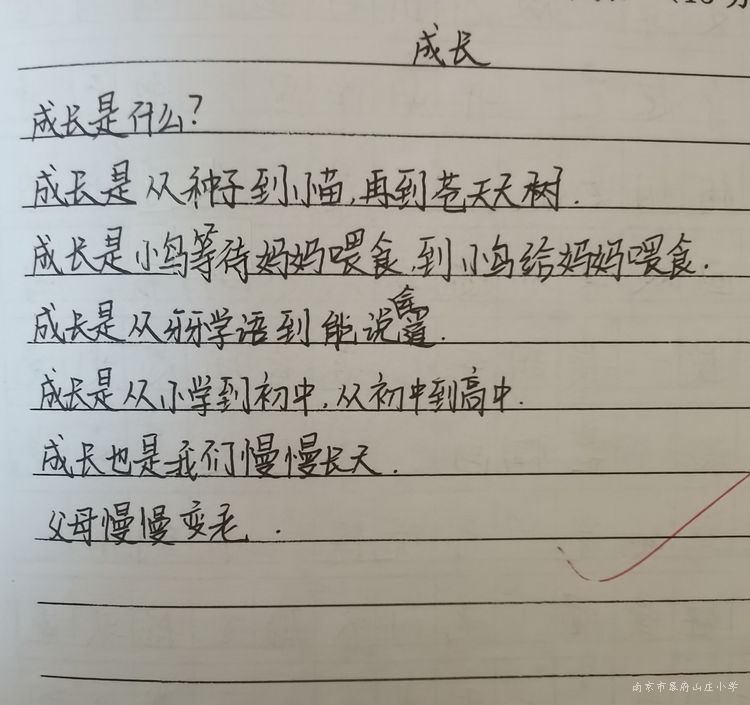 (10分
成长
成长是什么?
成长是从种子到小苗,再到苍天天树.
成长是小鸟等待妈妈喂食,到小鸟给妈妈喂食.
成长是从牙牙学语到能说会道.
成长是从小学到初中,从初中到高中.
成长也是我们慢慢长大.
父母慢慢变老.
南京市晨府山庄小学